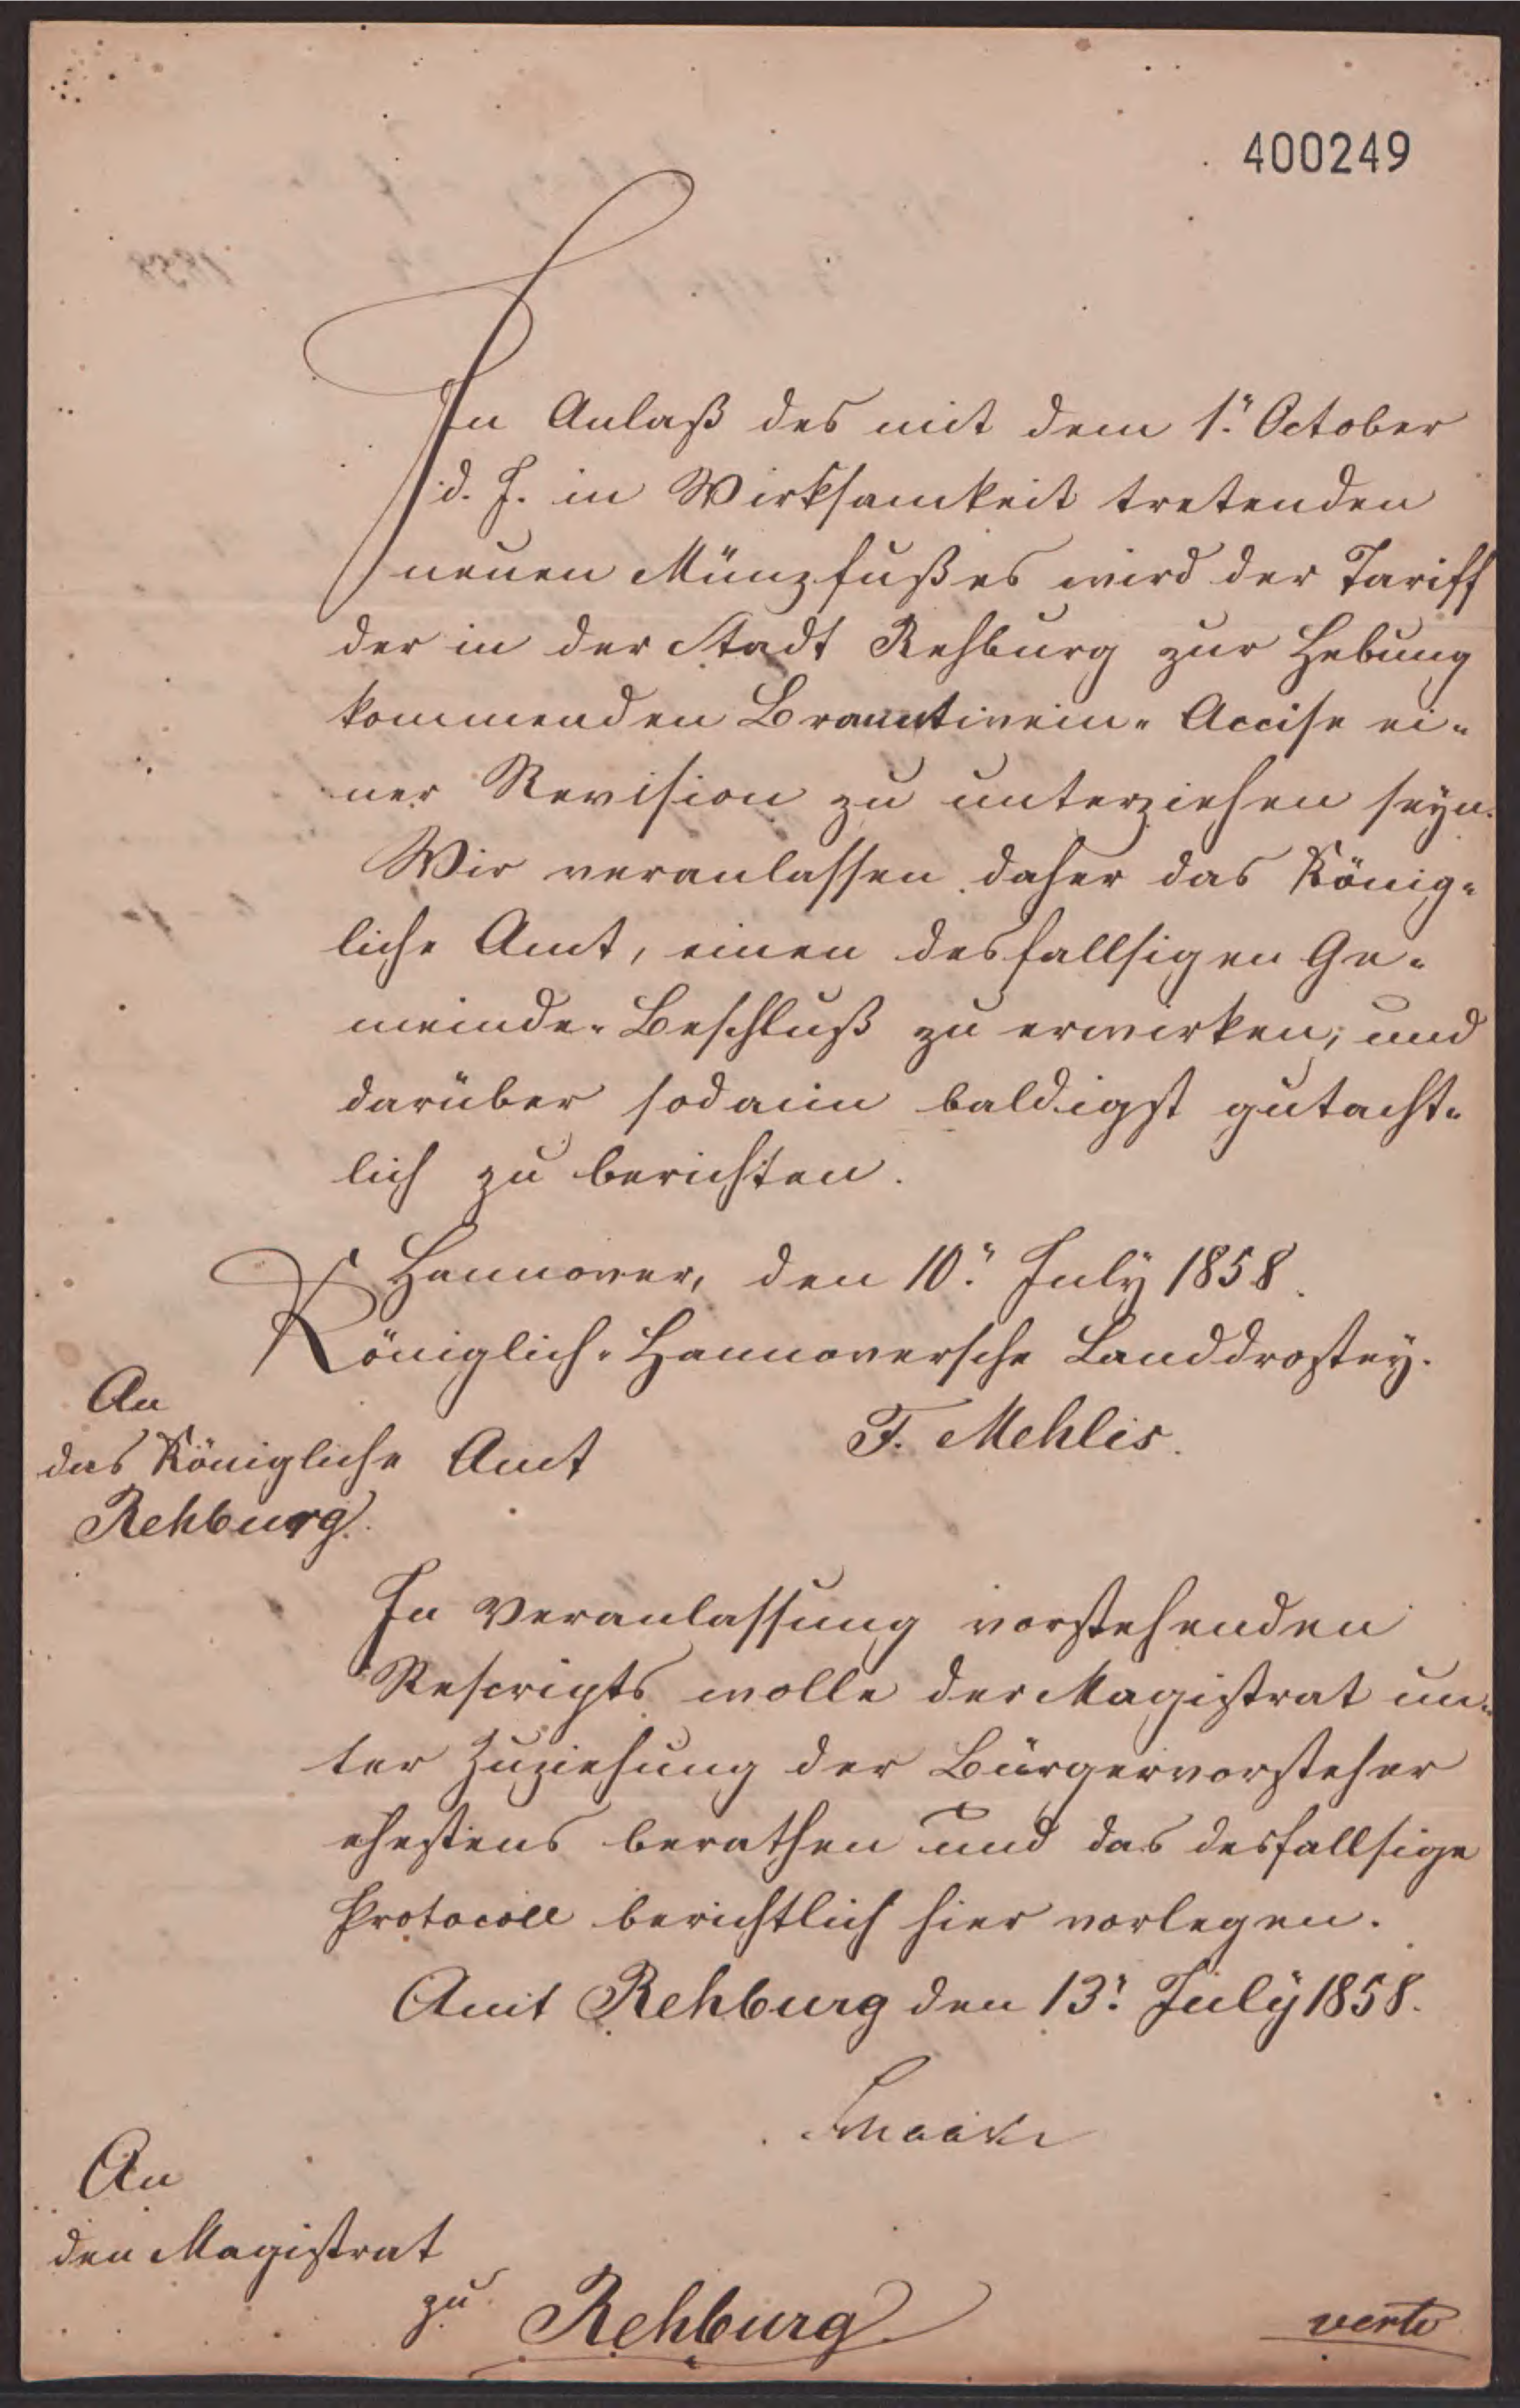 400249
In Anlaß des mit dem 1. October
d. J. in Wirksamkeit tretenden
neuen Münzfußes wird der Tariff
der in der Stadt Rehburg zur Hebung
kommenden Branntwein-Accise ei-
ner Revision zu unterziehen seyn.
Wir veranlassen daher das König-
liche Amt, einen desfallsigen Ge-
meinde-Beschluß zu erwirken, und
darüber sodann baldigst gutacht-
lich zu berichten.
Hannover, den 10. July 1858.
Königlich-Hannoversche Landdrostey.
F. Mehlis.
An
das Königliche Amt
Rehburg.
In Veranlassung vorstehenden
Rescripts wolle der Magistrat un-
ter Zuziehung der Bürgervorsteher
ehestens berathen und das desfallsige
Protocoll berichtlich hier vorlegen.
Amt Rehburg den 13. July 1858.
An
den Magistrat
zu Rehburg
verte